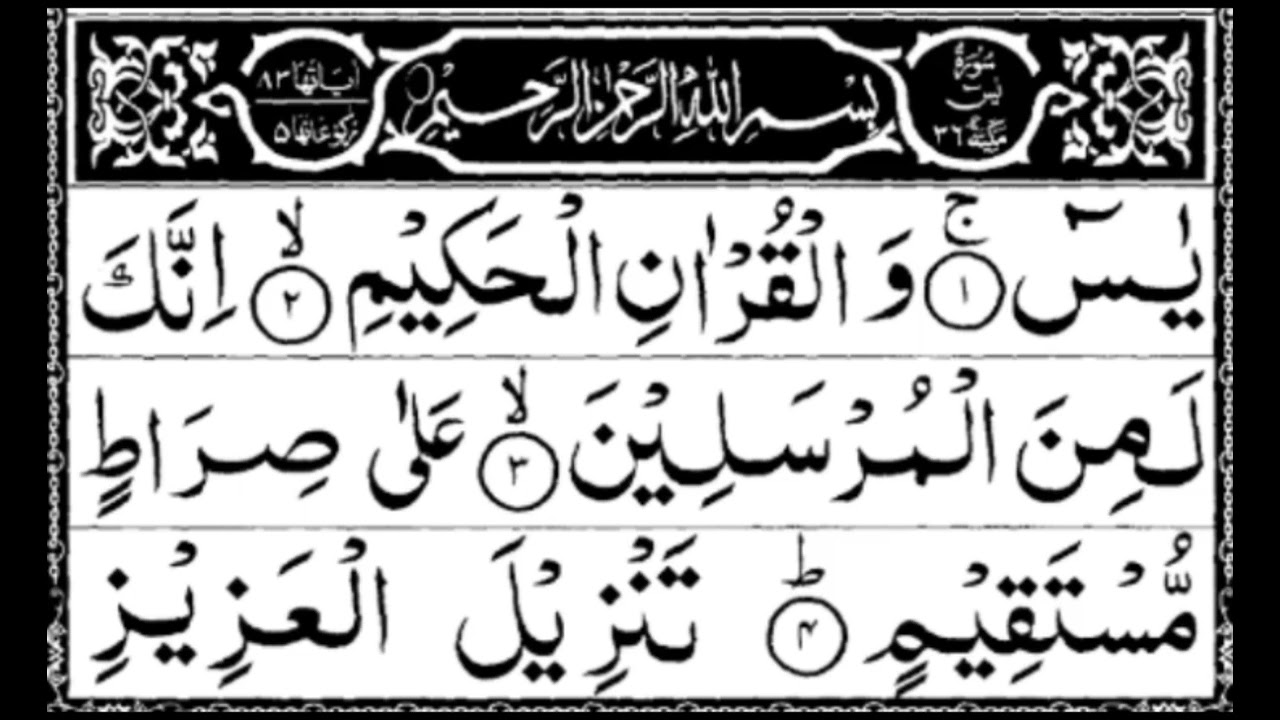 سُورَةُ يٰسٓ مَكِّيَّةٌ ٣٦
بِسْمِ اللّٰهِ الرَّحْمٰنِ الرَّحِيْمِ
اٰيَاتُهَا ٨٣ رُكُوْعَاتُهَا ٥
يٰسٓ ۚ ﴿۱﴾ وَ الْقُرْاٰنِ الْحَكِيْمِ ۙ ﴿۲﴾ اِنَّكَ
لَمِنَ الْمُرْسَلِيْنَ ۙ ﴿۳﴾ عَلٰى صِرَاطٍ
مُّسْتَقِيْمٍ ؕ ﴿۴﴾ تَنْزِيْلَ الْعَزِيْزِ